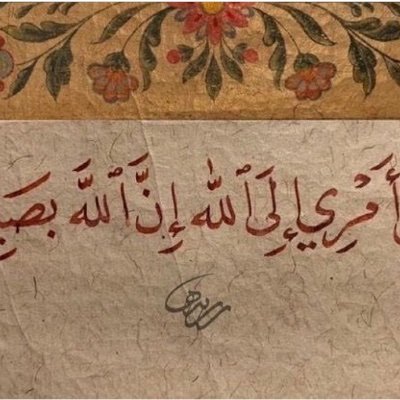 أَمْرِي إِلَى ٱللَّهِ إِنَّ ٱللَّهَ بَصِي